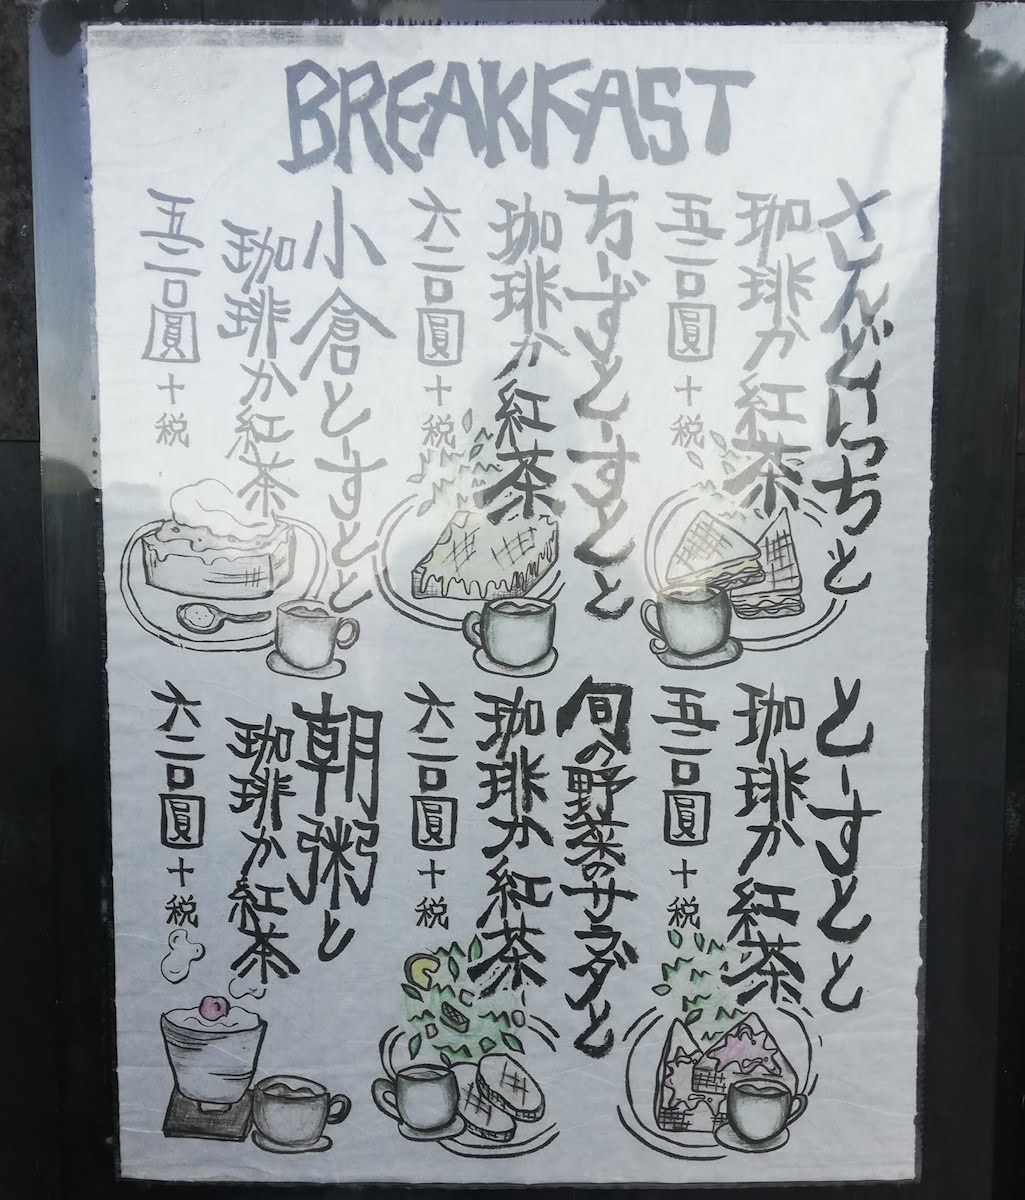 BREAKFAST
さんどいっちと
珈琲か紅茶
五二〇圓
十税
ちーずとーすとと
珈琲か紅茶
六二〇圓
十税
小倉とーすとと
珈琲か紅茶
五二〇圓
十税
とーすとと
珈琲か紅茶
五二〇圓
十税
旬の野菜のサラダと
珈琲か紅茶
六二〇圓
十税
朝粥と
珈琲か紅茶
六二〇圓
十税